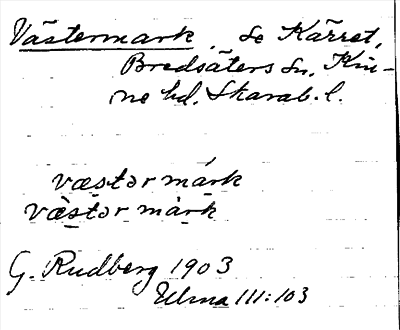 Västermark, se Kärret,
Bredsäters sn, Kin-
ne hd. Skarab. l.
væstər màrk
væ̀stər màrk
G. Rudberg 1903
Ulma 111:103